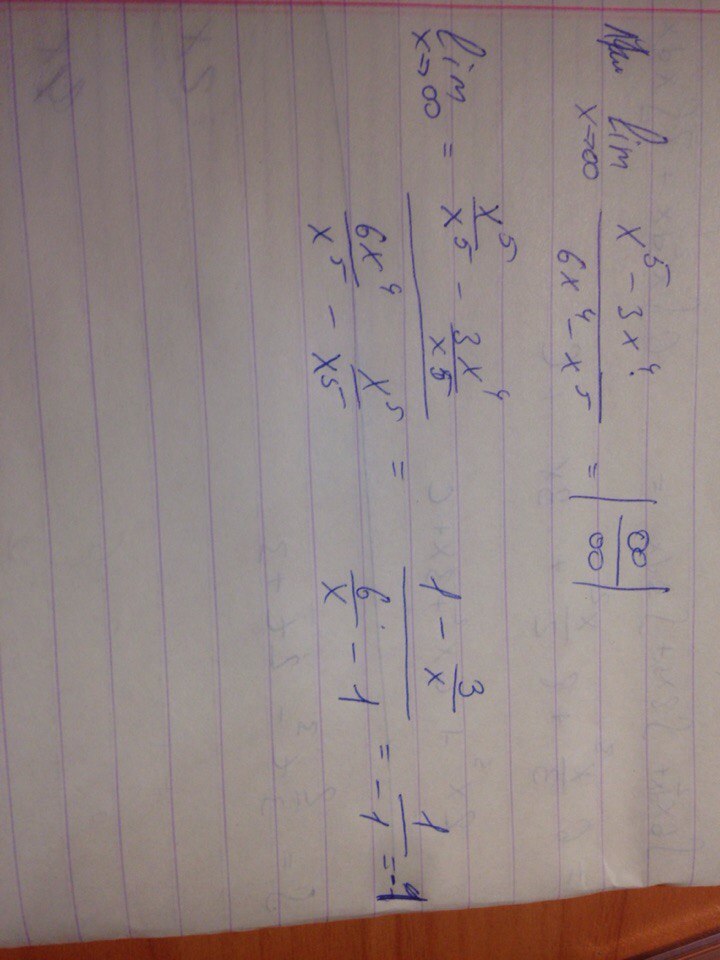 При lim x→∞ (x⁵ - 3x⁴) / (6x⁴ - x⁵) = | ∞/∞ |
lim x→∞ = (x⁵/x⁵ - 3x⁴/x⁵) / (6x⁴/x⁵ - x⁵/x⁵) = (1 - 3/x) / (6/x - 1) = 1/-1 = -1